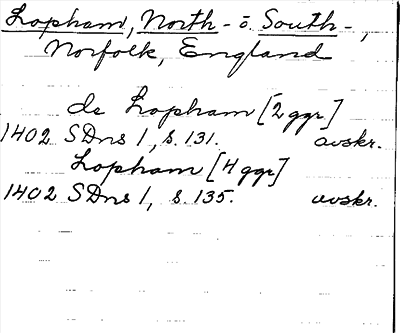 Lopham, North- o. South-,
Norfolk, England
de Lopham [2 ggr]
1402 SDns 1, s. 131. avskr.
Lopham [4 ggr]
1402 SDns 1, s. 135. avskr.